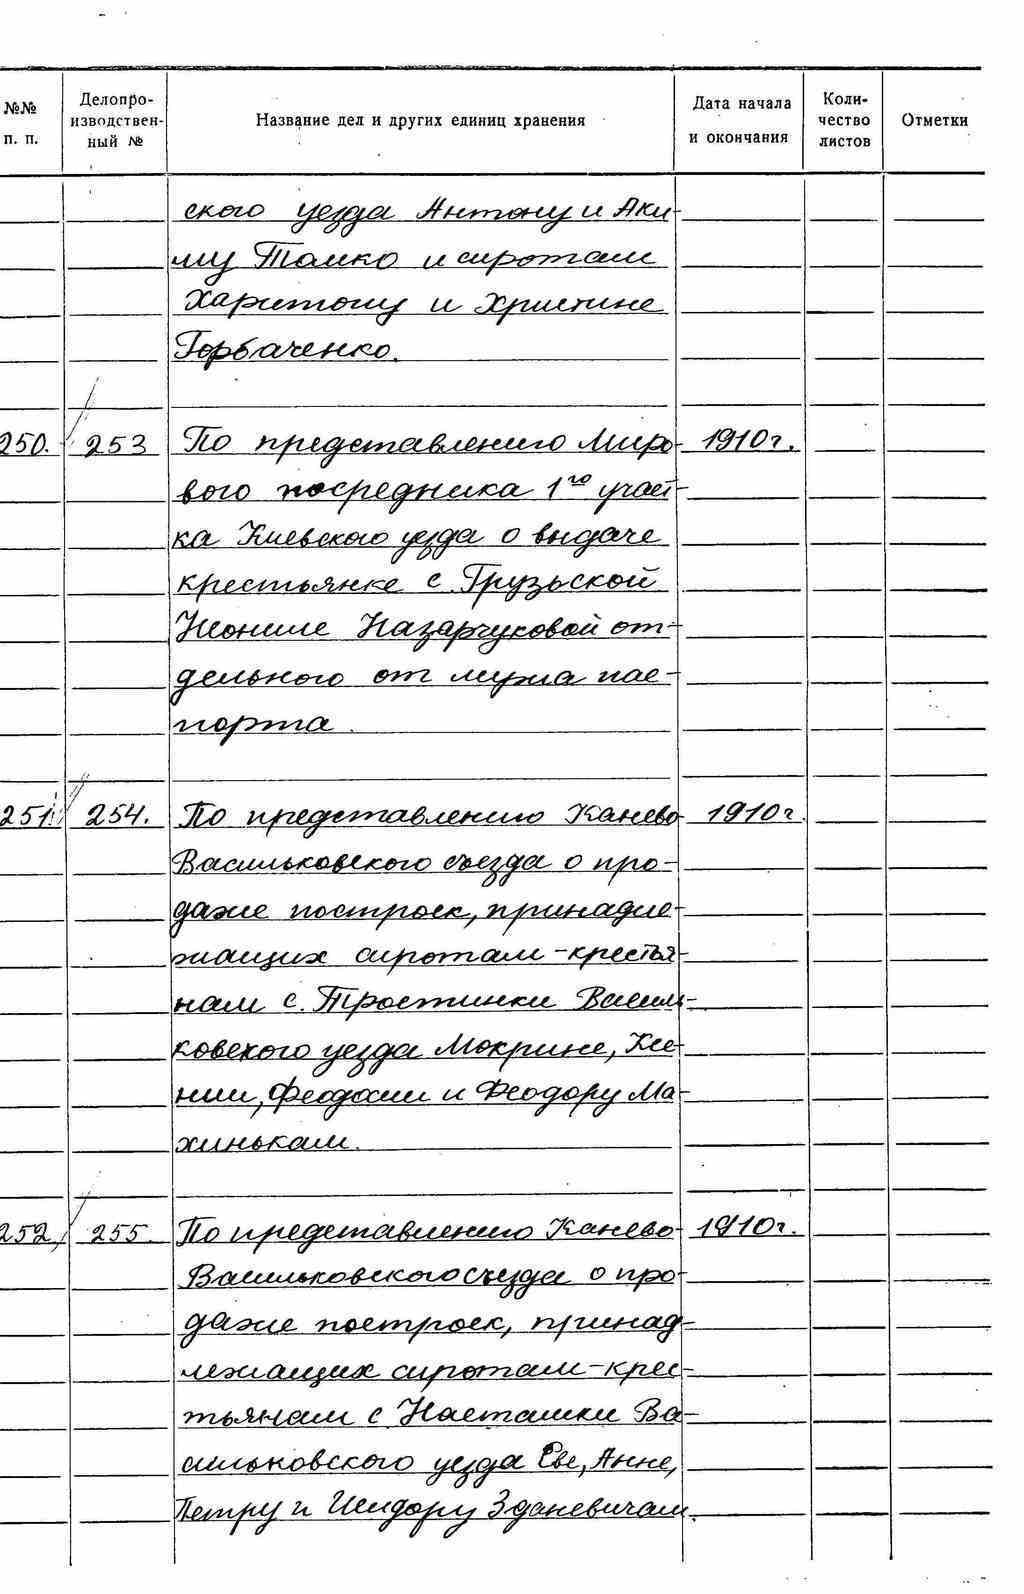 №№ п. п. Делопро-изводствен-ный № Название дел и других единиц хранения Дата начала и окончания Коли-чество листов Отметки
ского уезда Антону и Аки-
му Томко и сиротам
Харитону и Христине
Горбаченко.
250. 253 По представлению Миро- 1910г.
вого посредника 1го участ-
ка Киевского уезда о выдаче
крестьянке с. Грузьской
Неониле Назарчуковой от-
дельного от мужа пас-
порта.
251. 254. По представлению Канево- 1910г.
Васильковского съезда о про-
даже построек, принадле-
жащих сиротам-крестья-
нам с. Тростинки Василь-
ковского уезда Мокрине, Ксе-
нии, Феодосии и Феодору Ма-
хинькам.
252, 255. По представлению Канево- 1910г.
Васильковского съезда о про-
даже построек, принад-
лежащих сиротам-крес-
тьянам с Насташки Ва-
сильковского уезда Еве, Анне,
Петру и Исидору Здоневичам.